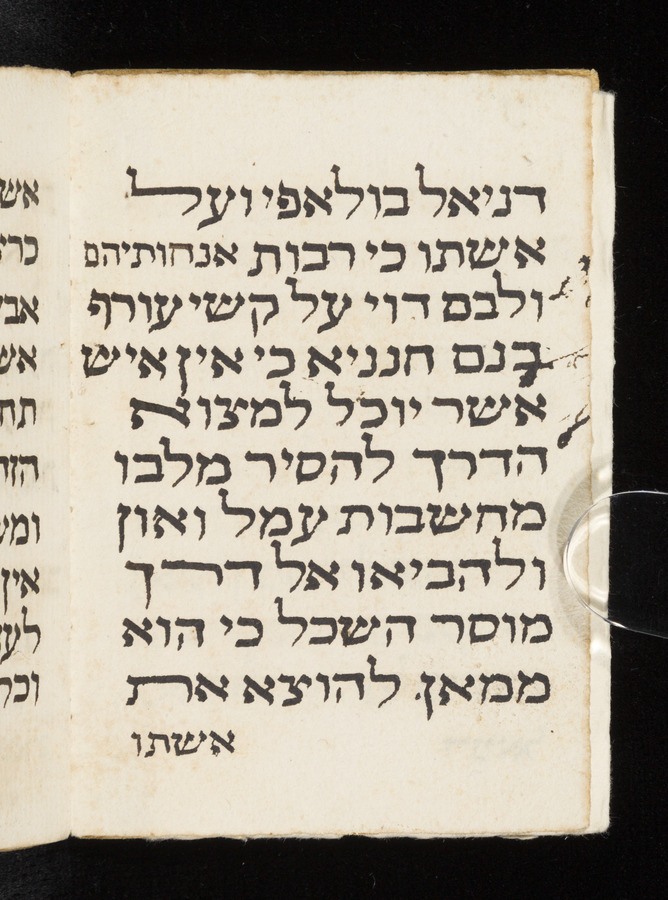 דניאל בולאפי ועל
אשתו כי רבות אנחותיהם
ולבם דוי על קשי עורף
בנם חנניא כי אין איש
אשר יוכל למצוא
הדרך להסיר מלבו
מחשבות עמל ואון
ולהביאו אל דרך
מוסר השכל כי הוא
ממאן להוציא את
אשתו